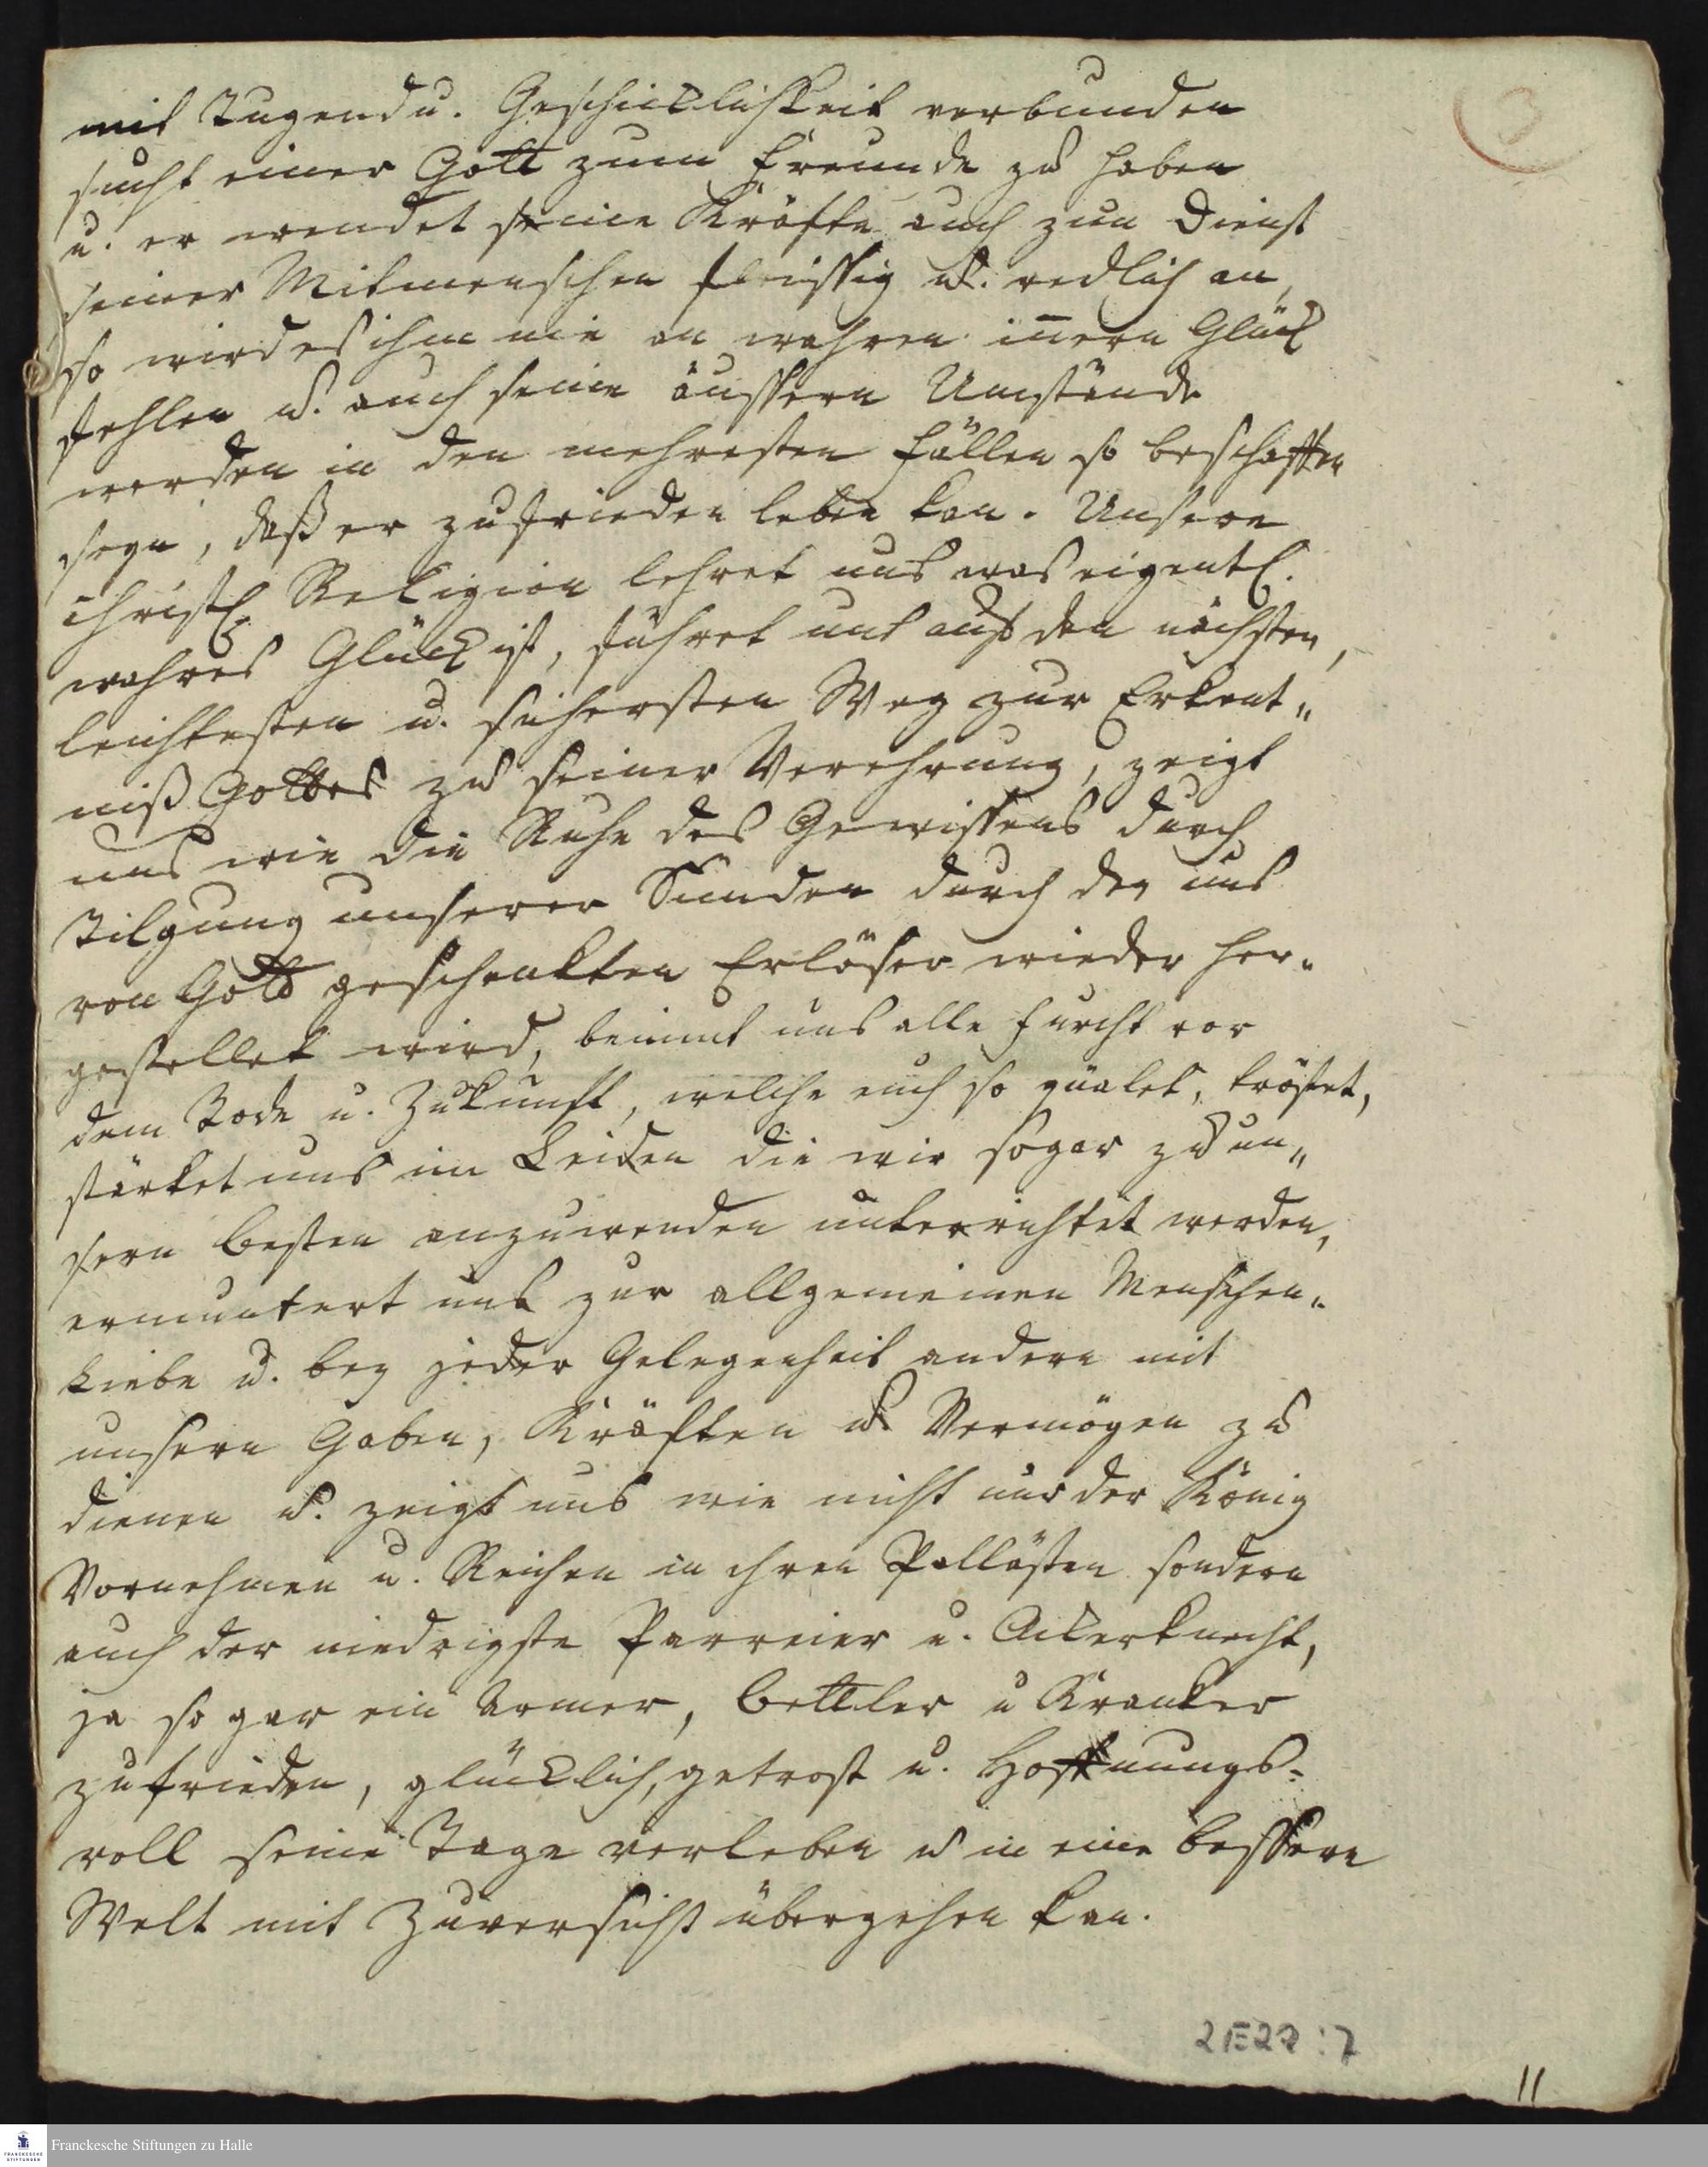 3
mit Tugend u. Geschicklichkeit verbunden
sucht einer Gott zum Freunde zu haben
u. er wendet seine Kräfte auch zum Dienst
seiner Mitmenschen fleissig u. redlich an,
so wird es ihm nie an wahren iñern Glück
fehlen u. auch seine äussern Umstände
werden in den mehresten Fällen so beschaffen
seyn, daß er zufrieden leben kan. Unsere
christl. Religion lehret uns was eigentl.
wahres Glück ist, führet uns auf den nächsten,
leichtesten u. sichersten Weg zur Erkent„
niß Gottes zu seiner Verehrung, zeigt
uns wie die Ruhe des Gewissens durch
Tilgung unserer Sünden durch den uns
von Gott geschenkten Erlöser wieder her„
gestellet wird, benimt uns alle Furcht vor
dem Tode u. Zukunft, welche euch so quälet, tröstet,
stärket uns im Leiden die wir sogar zu un„
sern besten anzuwenden unterrichtet werden,
ermuntert uns zur allgemeinen Menschen„
liebe u. bey jeder Gelegenheit andern mit
unsern Gaben, Kräften u. Vermögen zu
dienen u. zeigt uns wie nicht nur der König
Vornehmen u. Reichen in ihren Pallästen sondern
auch der niedrigste Parreier u. Ackerknecht,
ja so gar ein Armer, Bettler u Kranker
zufrieden, glücklich, getrost u. Hoffnungs-
voll seine Tage verleben u in eine bessere
Welt mit Zuversicht übergehen kan.
2E22:7
11
Franckesche Stiftungen zu Halle
FRANCKESCHE
STIFTUNGEN